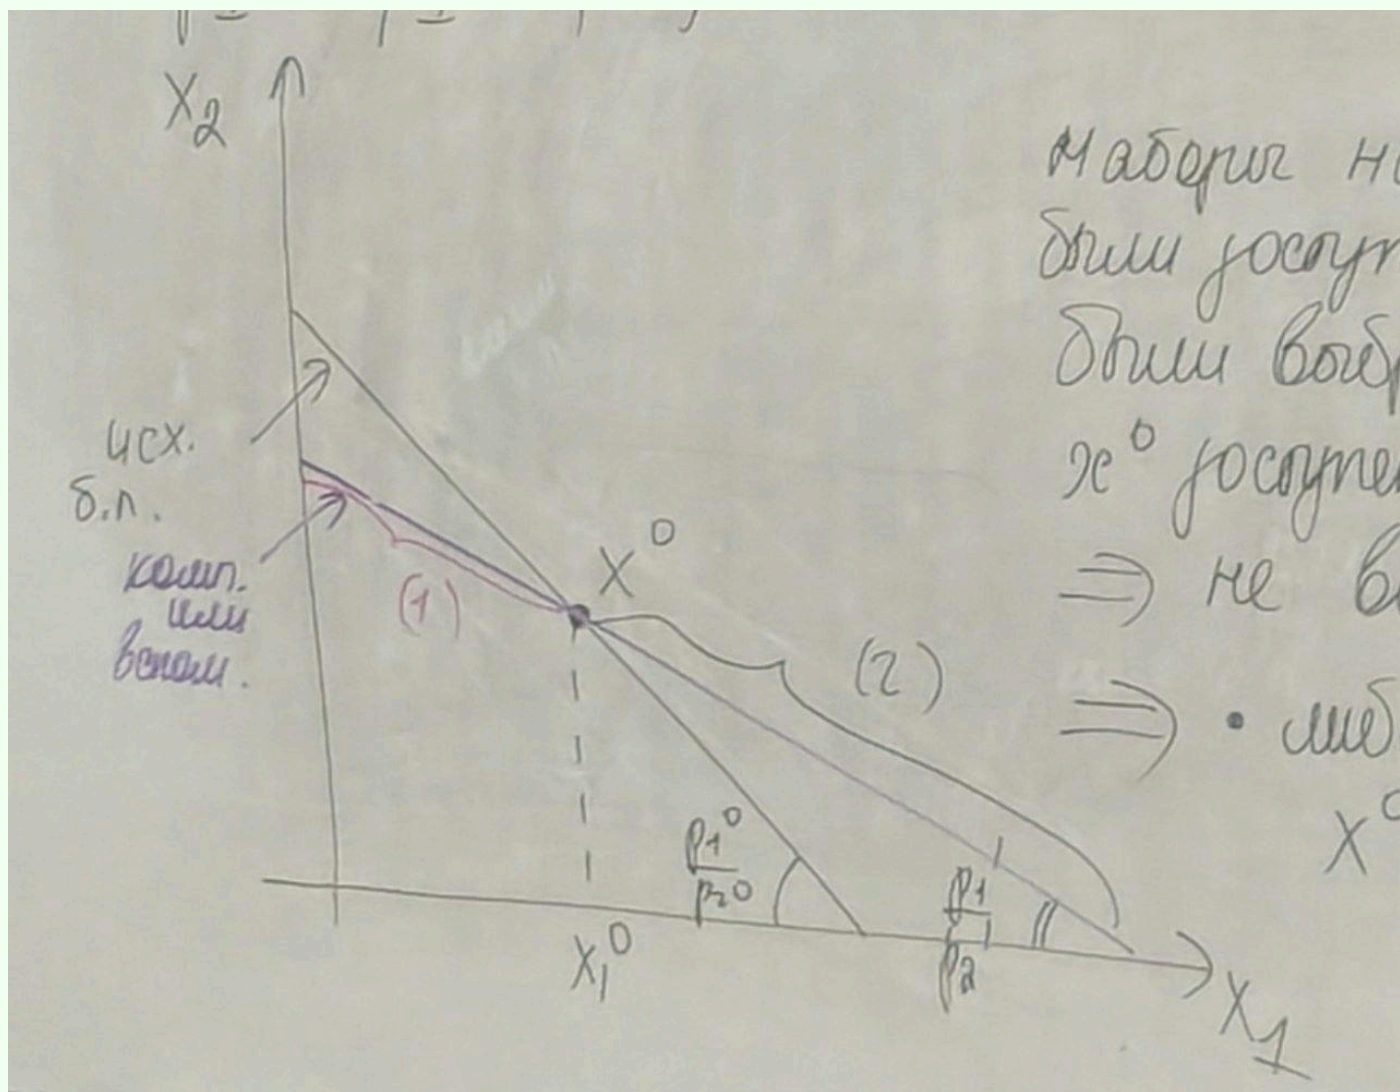 X₂
исх.
б.л.
комп.
или
вспом.
(1)
X⁰
(2)
p₁⁰
p₂⁰
p₁'
p₂'
X₁⁰
X₁
Наборы
были доступ
были выбр
x⁰ доступен
⇒ не
⇒ • люб
X⁰